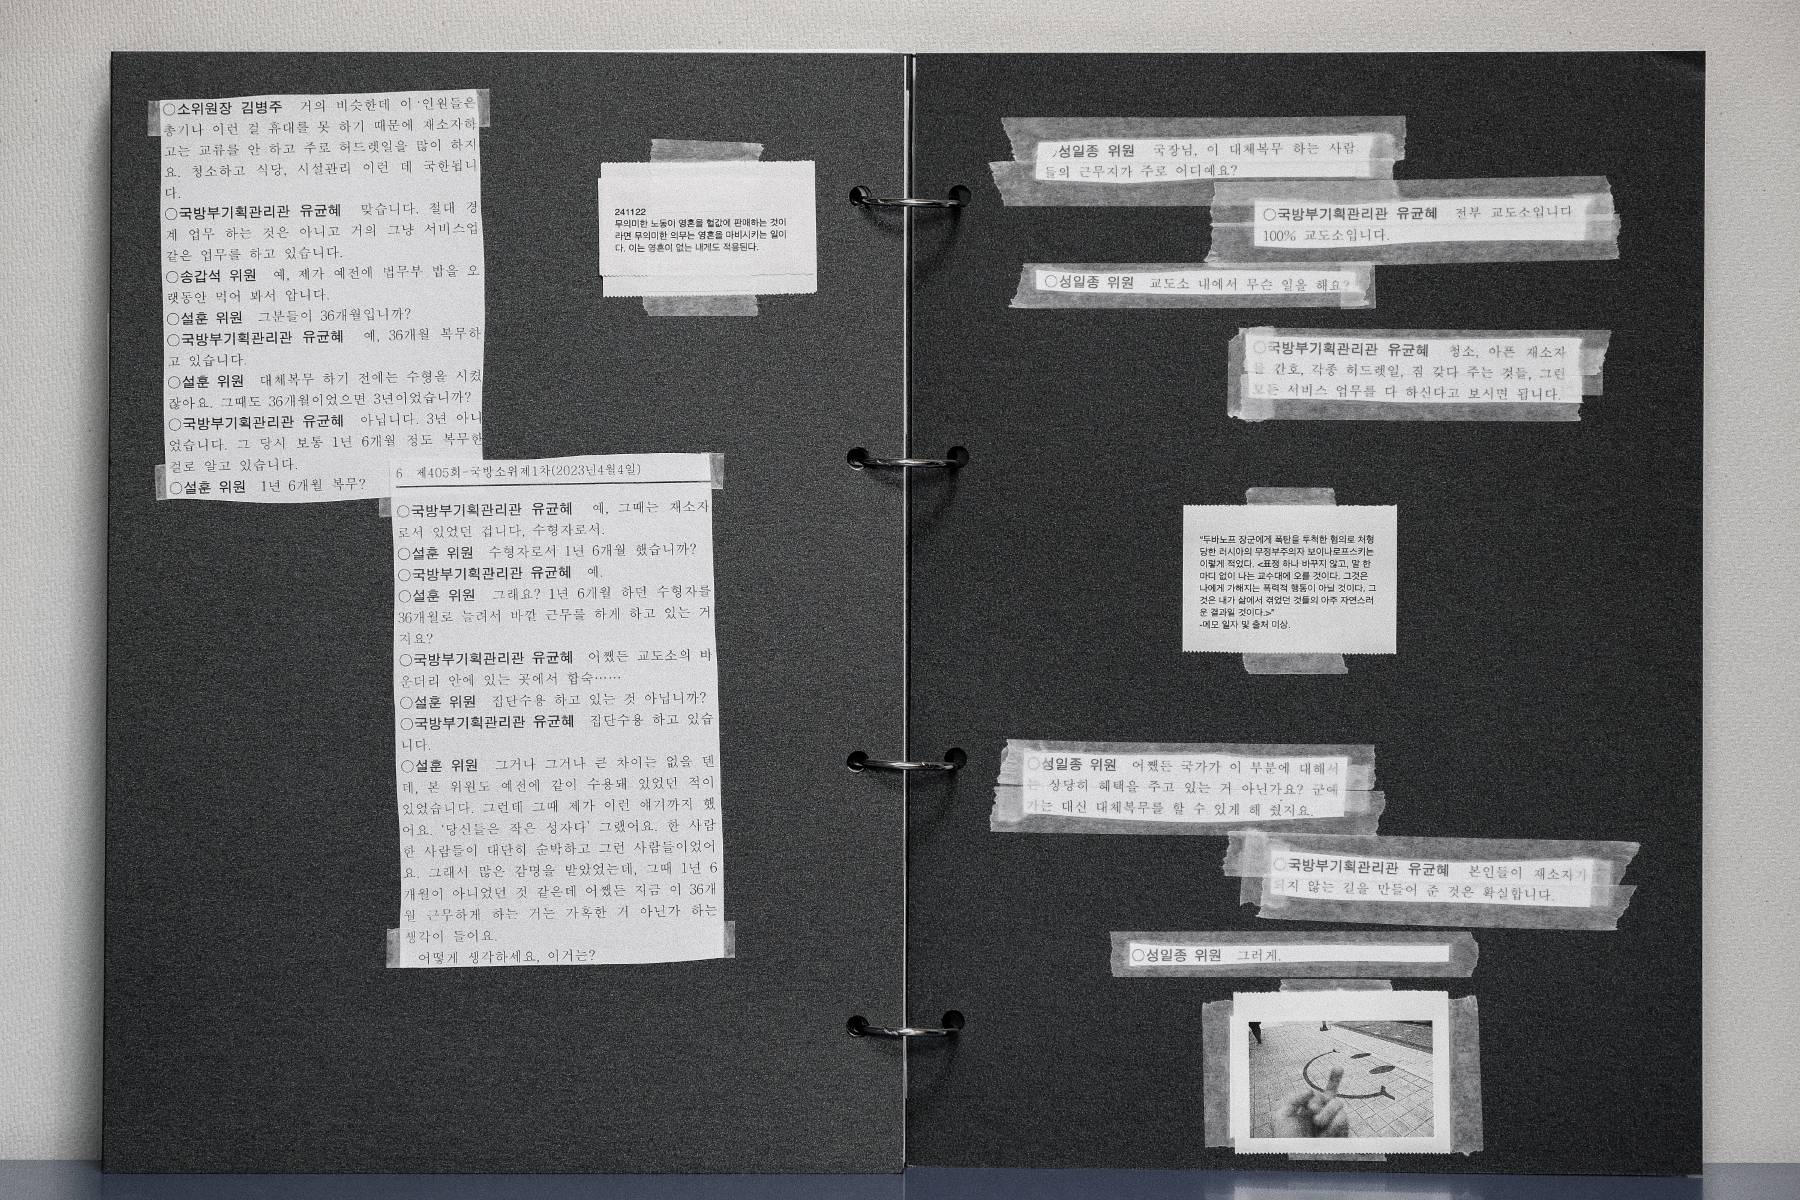 ○소위원장 김병주 거의 비슷한데 이 인원들은
총기나 이런 걸 휴대를 못 하기 때문에 재소자하
고는 교류를 안 하고 주로 허드렛일을 많이 하지
요. 청소하고 식당, 시설관리 이런 데 국한됩니
다.
○국방부기획관리관 유균혜 맞습니다. 절대 경
계 업무 하는 것은 아니고 거의 그냥 서비스업
같은 업무를 하고 있습니다.
○송갑석 위원 예, 제가 예전에 법무부 밥을 오
랫동안 먹어 봐서 압니다.
○설훈 위원 그분들이 36개월입니까?
○국방부기획관리관 유균혜 예, 36개월 복무하
고 있습니다.
○설훈 위원 대체복무 하기 전에는 수형을 시켰
잖아요. 그때도 36개월이었으면 3년이었습니까?
○국방부기획관리관 유균혜 아닙니다. 3년 아니
었습니다. 그 당시 보통 1년 6개월 정도 복무한
걸로 알고 있습니다.
○설훈 위원 1년 6개월 복무?
6 제405회-국방소위제1차(2023년4월4일)
○국방부기획관리관 유균혜 예, 그때는 재소자
로서 있었던 겁니다, 수형자로서.
○설훈 위원 수형자로서 1년 6개월 했습니까?
○국방부기획관리관 유균혜 예.
○설훈 위원 그래요? 1년 6개월 하던 수형자를
36개월로 늘려서 바깥 근무를 하게 하고 있는 거
지요?
○국방부기획관리관 유균혜 어쨌든 교도소의 바
운더리 안에 있는 곳에서 합숙……
○설훈 위원 집단수용 하고 있는 것 아닙니까?
○국방부기획관리관 유균혜 집단수용 하고 있습
니다.
○설훈 위원 그거나 그거나 큰 차이는 없을 텐
데, 본 위원도 예전에 같이 수용돼 있었던 적이
있었습니다. 그런데 그때 제가 이런 얘기까지 했
어요. ‘당신들은 작은 성자다’ 그랬어요. 한 사람
한 사람들이 대단히 순박하고 그런 사람들이었어
요. 그래서 많은 감명을 받았었는데, 그때 1년 6
개월이 아니었던 것 같은데 어쨌든 지금 이 36개
월 근무하게 하는 거는 가혹한 거 아닌가 하는
생각이 들어요.
어떻게 생각하세요, 이거는?
241122
무의미한 노동이 영혼을 헐값에 판매하는 것이
라면 무의미한 의무는 영혼을 마비시키는 일이
다. 이는 영혼이 없는 내게도 적용된다.
○성일종 위원 국장님, 이 대체복무 하는 사람
들의 근무지가 주로 어디예요?
○국방부기획관리관 유균혜 전부 교도소입니다
100% 교도소입니다.
○성일종 위원 교도소 내에서 무슨 일을 해요?
○국방부기획관리관 유균혜 청소, 아픈 재소자
를 간호, 각종 허드렛일, 짐 갖다 주는 것들, 그런
모든 서비스 업무를 다 하신다고 보시면 됩니다.
“두바노프 장군에게 폭탄을 투척한 혐의로 처형
당한 러시아의 무정부주의자 보이나로프스키는
이렇게 적었다. <표정 하나 바꾸지 않고, 말 한
마디 없이 나는 교수대에 오를 것이다. 그것은
나에게 가해지는 폭력적 행동이 아닐 것이다. 그
것은 내가 삶에서 겪었던 것들의 아주 자연스러
운 결과일 것이다.>”
-메모 일자 및 출처 미상.
○성일종 위원 어쨌든 국가가 이 부분에 대해서
는 상당히 혜택을 주고 있는 거 아닌가요? 군에
가는 대신 대체복무를 할 수 있게 해 줬지요.
○국방부기획관리관 유균혜 본인들이 재소자가
되지 않는 길을 만들어 준 것은 확실합니다.
○성일종 위원 그러게.